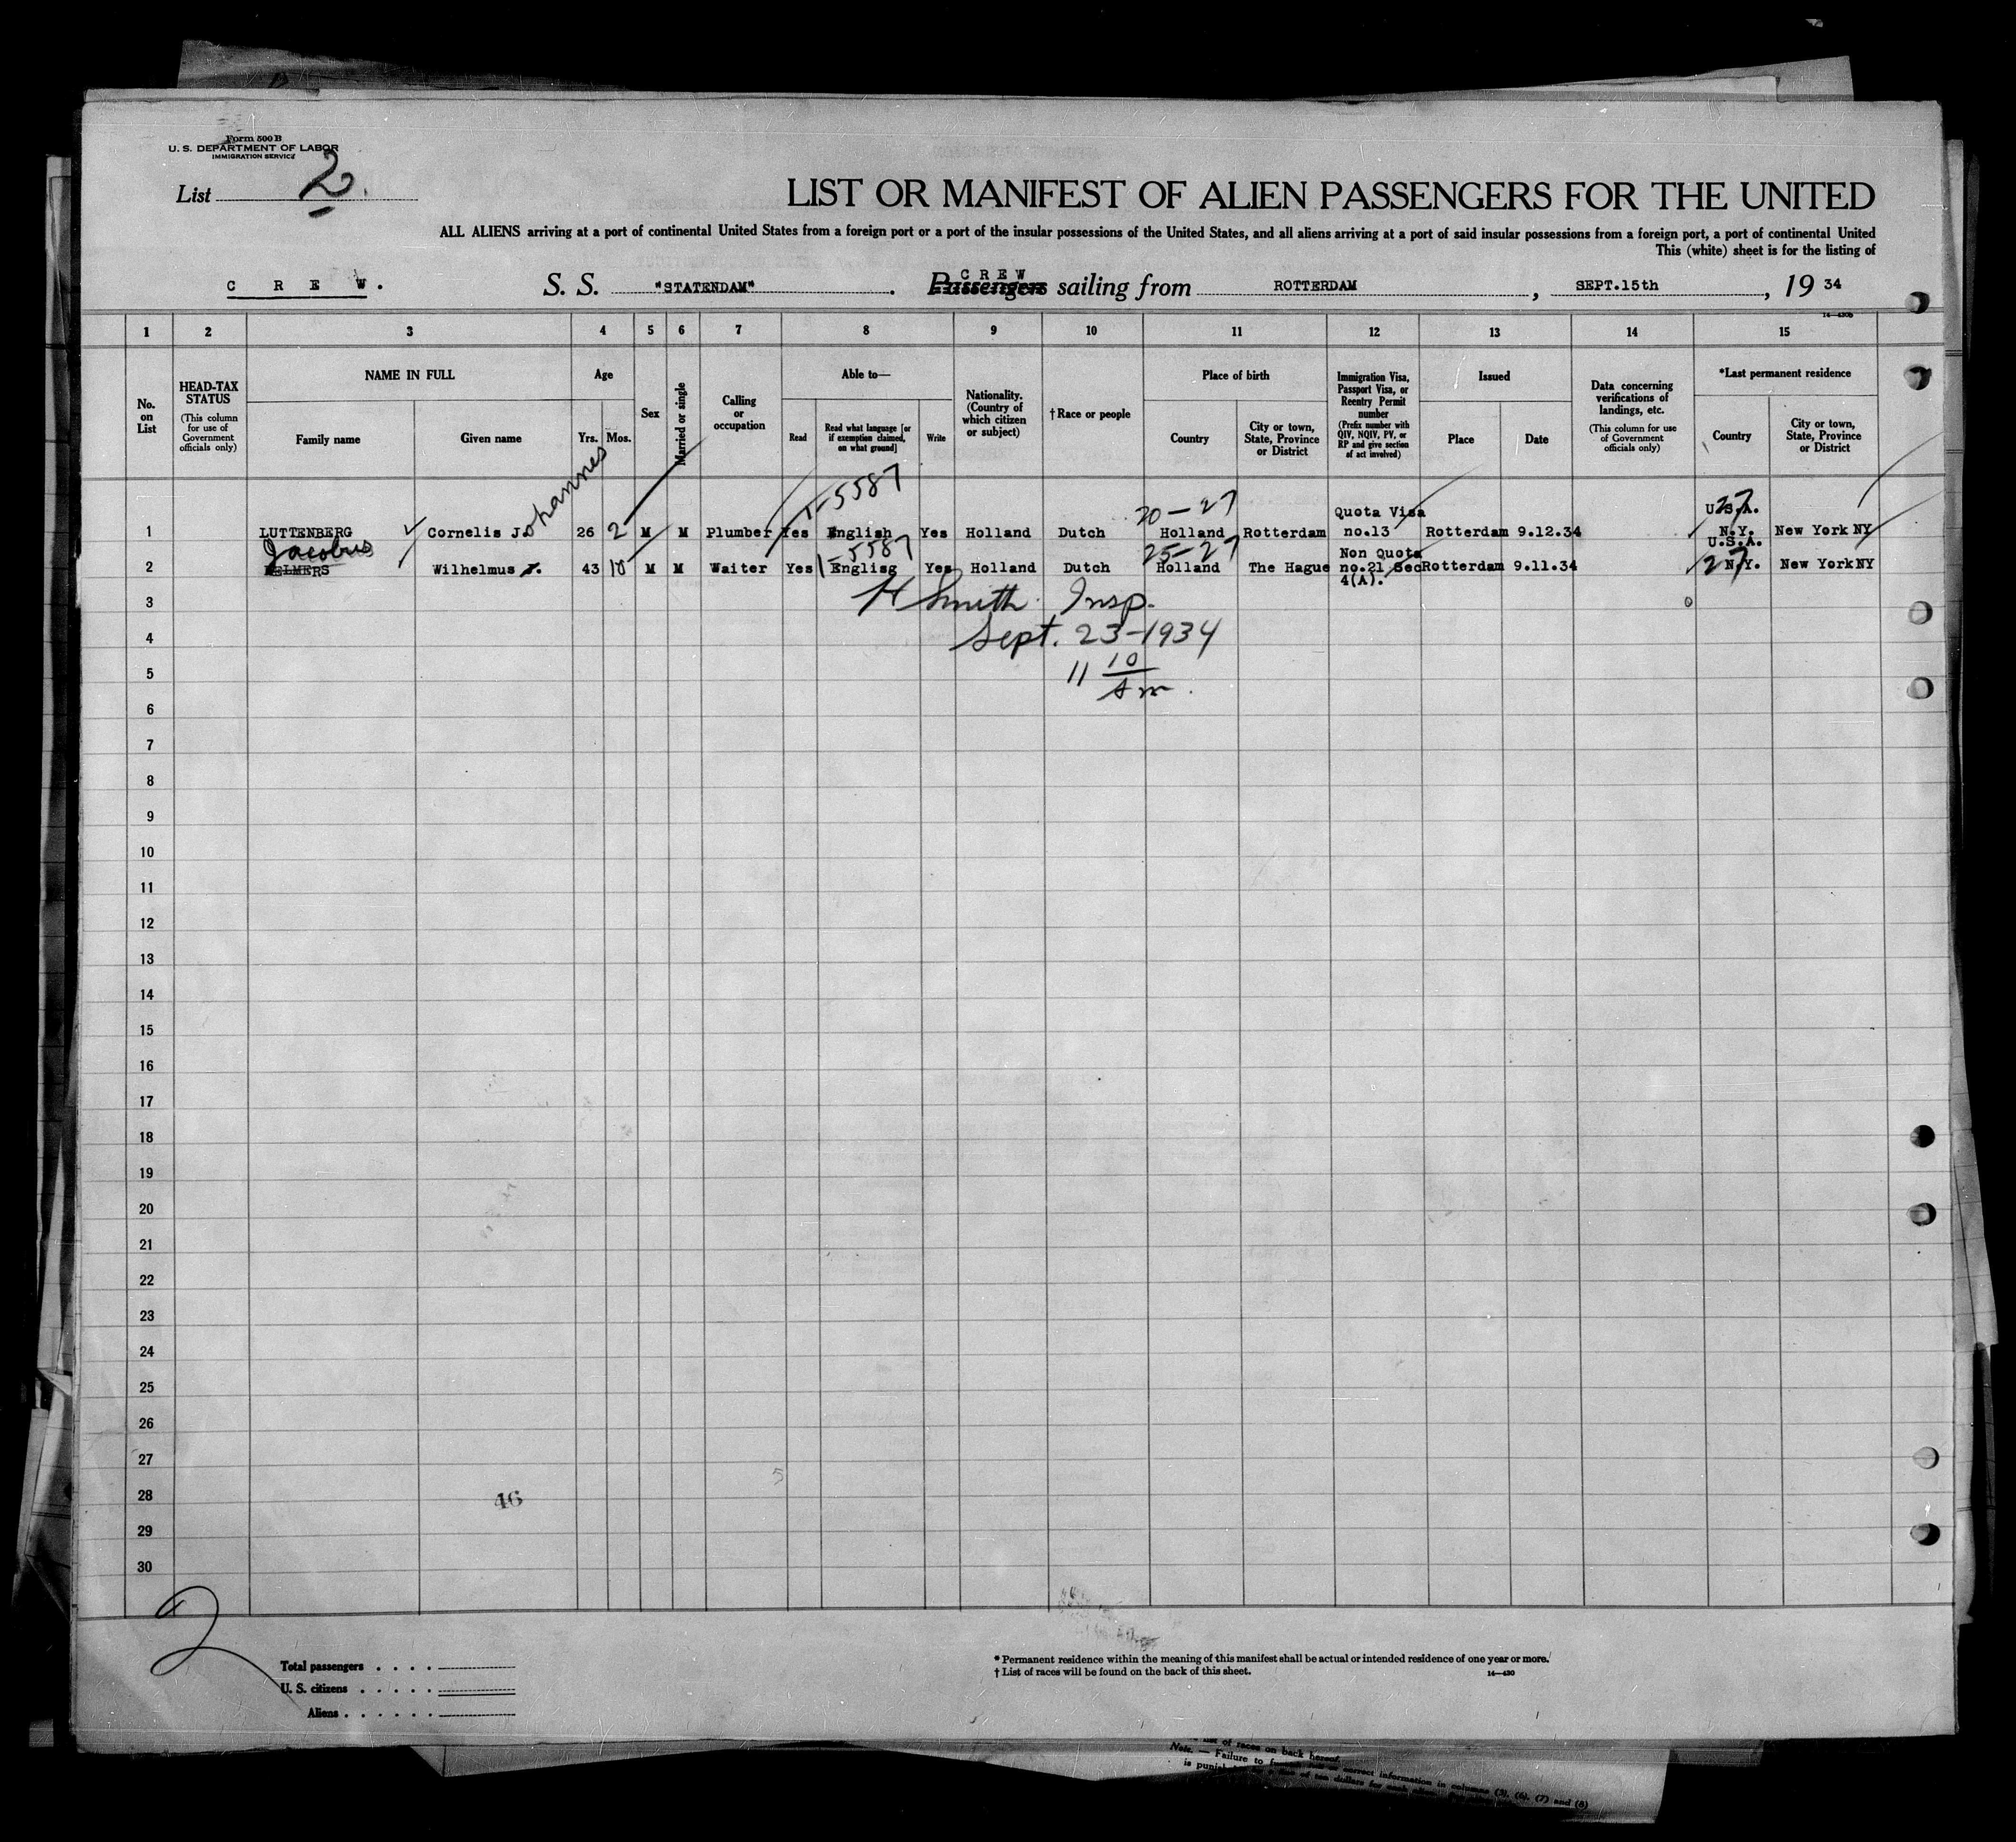 Form 500 B
U. S. DEPARTMENT OF LABOR
IMMIGRATION SERVICE
List 2.
LIST OR MANIFEST OF ALIEN PASSENGERS FOR THE UNITED
ALL ALIENS arriving at a port of continental United States from a foreign port or a port of the insular possessions of the United States, and all aliens arriving at a port of said insular possessions from a foreign port, a port of continental United
This (white) sheet is for the listing of
C R E W. S. S. "STATENDAM". Passengers CREW sailing from ROTTERDAM, SEPT.15th, 19 34
14—430B
1 2 3 4 5 6 7 8 9 10 11 12 13 14 15
No. on List
HEAD-TAX STATUS
(This column for use of Government officials only)
NAME IN FULL
Family name
Given name
Age
Yrs. Mos.
Sex
Married or single
Calling or occupation
Able to—
Read
Read what language [or if exemption claimed, on what ground]
Write
Nationality. (Country of which citizen or subject)
†Race or people
Place of birth
Country
City or town, State, Province or District
Immigration Visa, Passport Visa, or Reentry Permit number
(Prefix number with QIV, NQIV, PV, or RP and give section of act involved)
Issued
Place
Date
Data concerning verifications of landings, etc.
(This column for use of Government officials only)
*Last permanent residence
Country
City or town, State, Province or District
1-5587 20-27 Quota Visa U.S.A. 27
1 LUTTENBERG Cornelis Johannes 26 2 M M Plumber Yes English Yes Holland Dutch Holland Rotterdam no.13 Rotterdam 9.12.34 N.Y. New York NY
Jacobus 1-5587 25-27 Non Quota U.S.A.
2 HELMERS Wilhelmus J. 43 10 M M Waiter Yes Englisg Yes Holland Dutch Holland The Hague no.21 Sec Rotterdam 9.11.34 27 N.Y. New York NY
4(A).
3 H Smith Insp.
4 Sept. 23-1934
5 11 10/Am.
6
7
8
9
10
11
12
13
14
15
16
17
18
19
20
21
22
23
24
25
26
27
28 46
29
30
2
Total passengers . . . .
U. S. citizens . . . . .
Aliens . . . . . .
* Permanent residence within the meaning of this manifest shall be actual or intended residence of one year or more.
† List of races will be found on the back of this sheet.
14—430
list of races on back hereof.
Note. — Failure to correct information in columns (3), (6), (7) and (8)
of ten dollars for each alien.